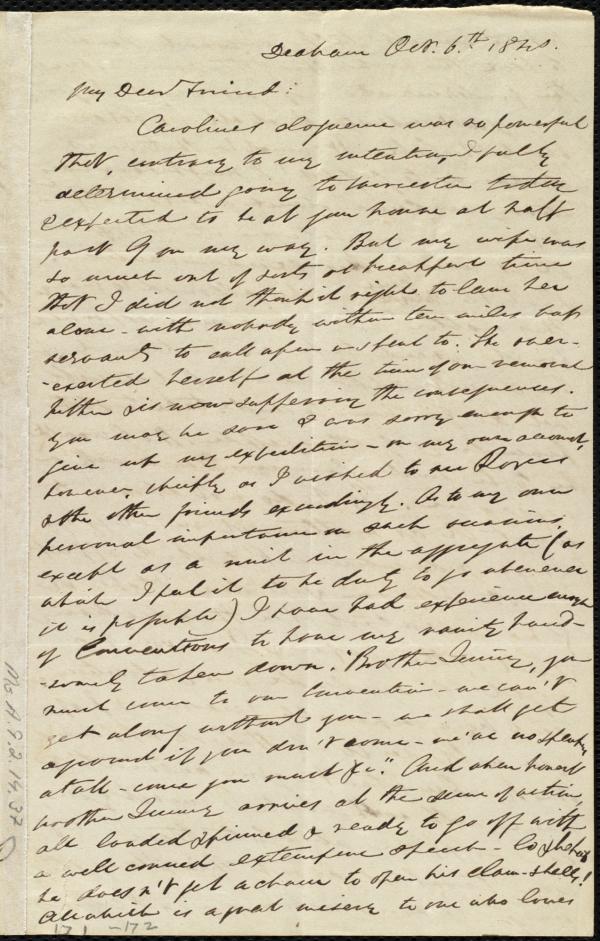 Dedham Oct. 6.th 1840.
My Dear Friend:
Caroline's eloquence was so powerful
that, contrary to my intention, I fully
determined going to Worcester today
& expected to be at your house at half
past 9 on my way. But my wife was
so much out of sorts at breakfast time
that I did not think it right to leave her
alone - with nobody within ten miles but
servants to call upon or speak to. She over-
-exerted herself at the time of our removal
hither & is now suffering the consequences.
You may be sure I was sorry enough to
give up my expedition - on my own account,
however, chiefly as I wished to see Rogers
& the other friends exceedingly. As to my own
personal importance on such occasions,
except as a unit in the aggregate (as
which I feel it to be duty to go whenever
it is possible) I have had experience enough
of Conventions to have my vanity hand-
-somely taken down. "Brother Quincy, you
must come to our Convention - we can't
get along without you - we shall get
aground if you don't come - we've no speakers
at all - come you must &c." And when honest
brother Quincy arrives at the scene of action,
all loaded & primed & ready to go off with
a well conned extempore speech - lo & behold
he doesn't get a chance to open his clam-shells!
All which is a great misery to one who loves
Ms. A. 9. 2. 14. 37
171 - 172